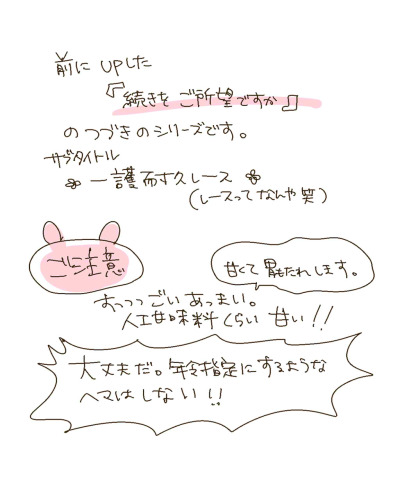 前に UPした
『続きを ご所望ですか』
のつづきのシリーズです。
サブタイトル
一護耐久レース
(レースってなんや笑)
ご注意
甘くて胃もたれします。
すっっっごいあっまい。
人工甘味料くらい甘い!!
大丈夫だ。年令指定にするような
ヘマはしない!!